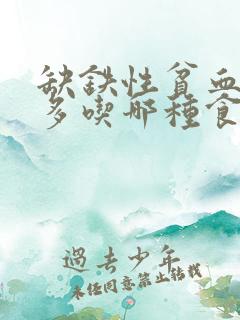 缺鉄性貧血
多喫哪種食
過去少年
未经同意禁止转载